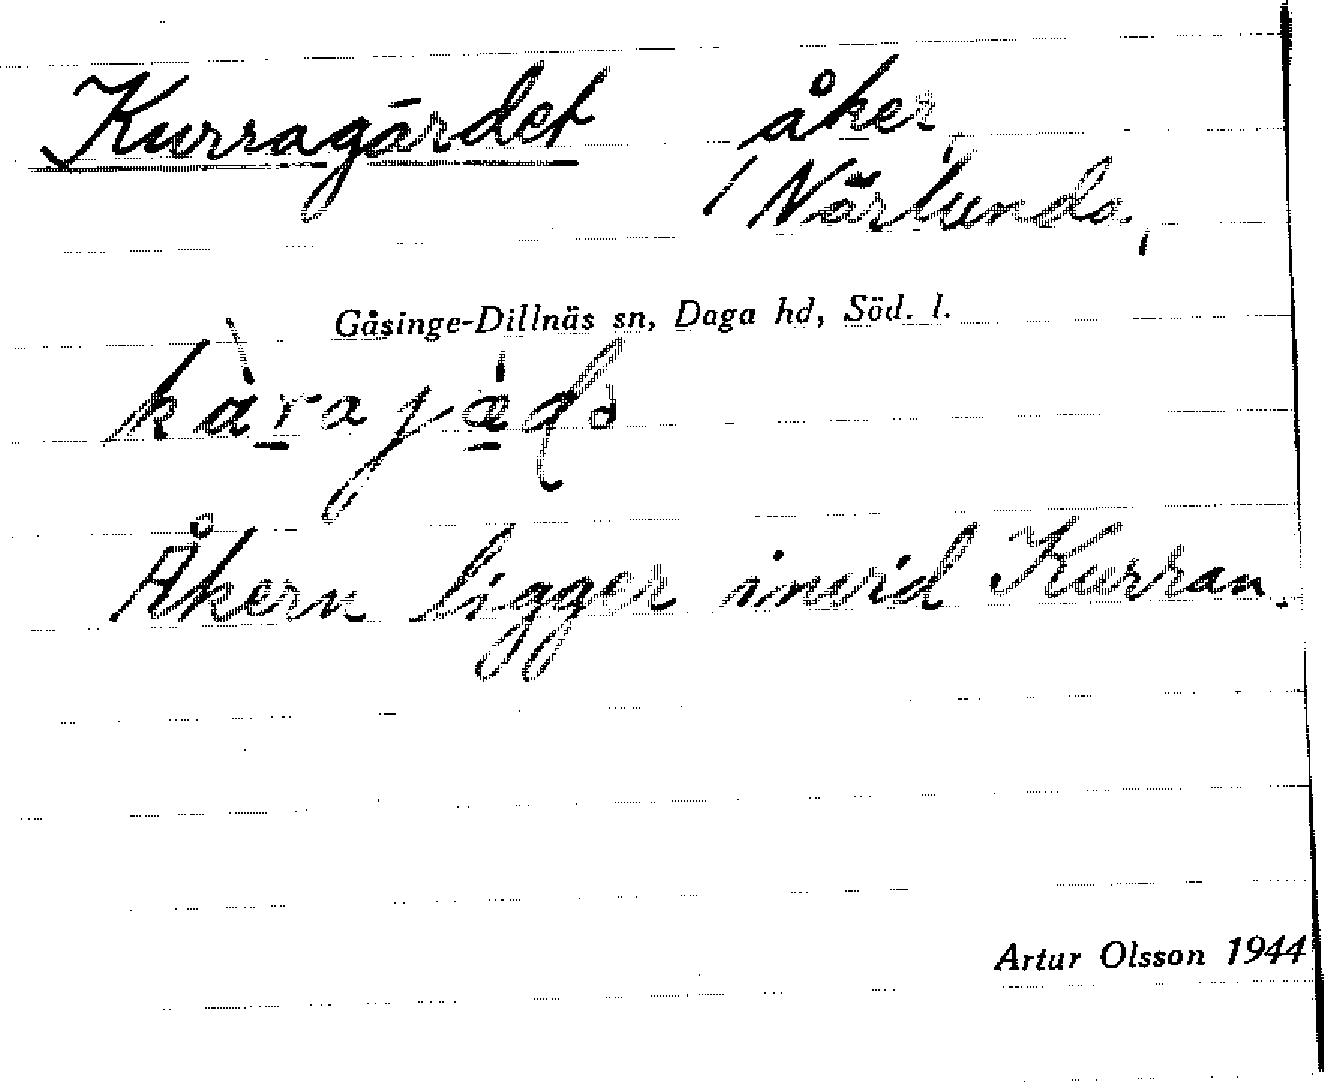 Kurragärdet åker,
/ Närlunda,
Gåsinge-Dillnäs sn, Daga hd, Söd. l.
Åkern ligger invid Kurran.
Artur Olsson 1944